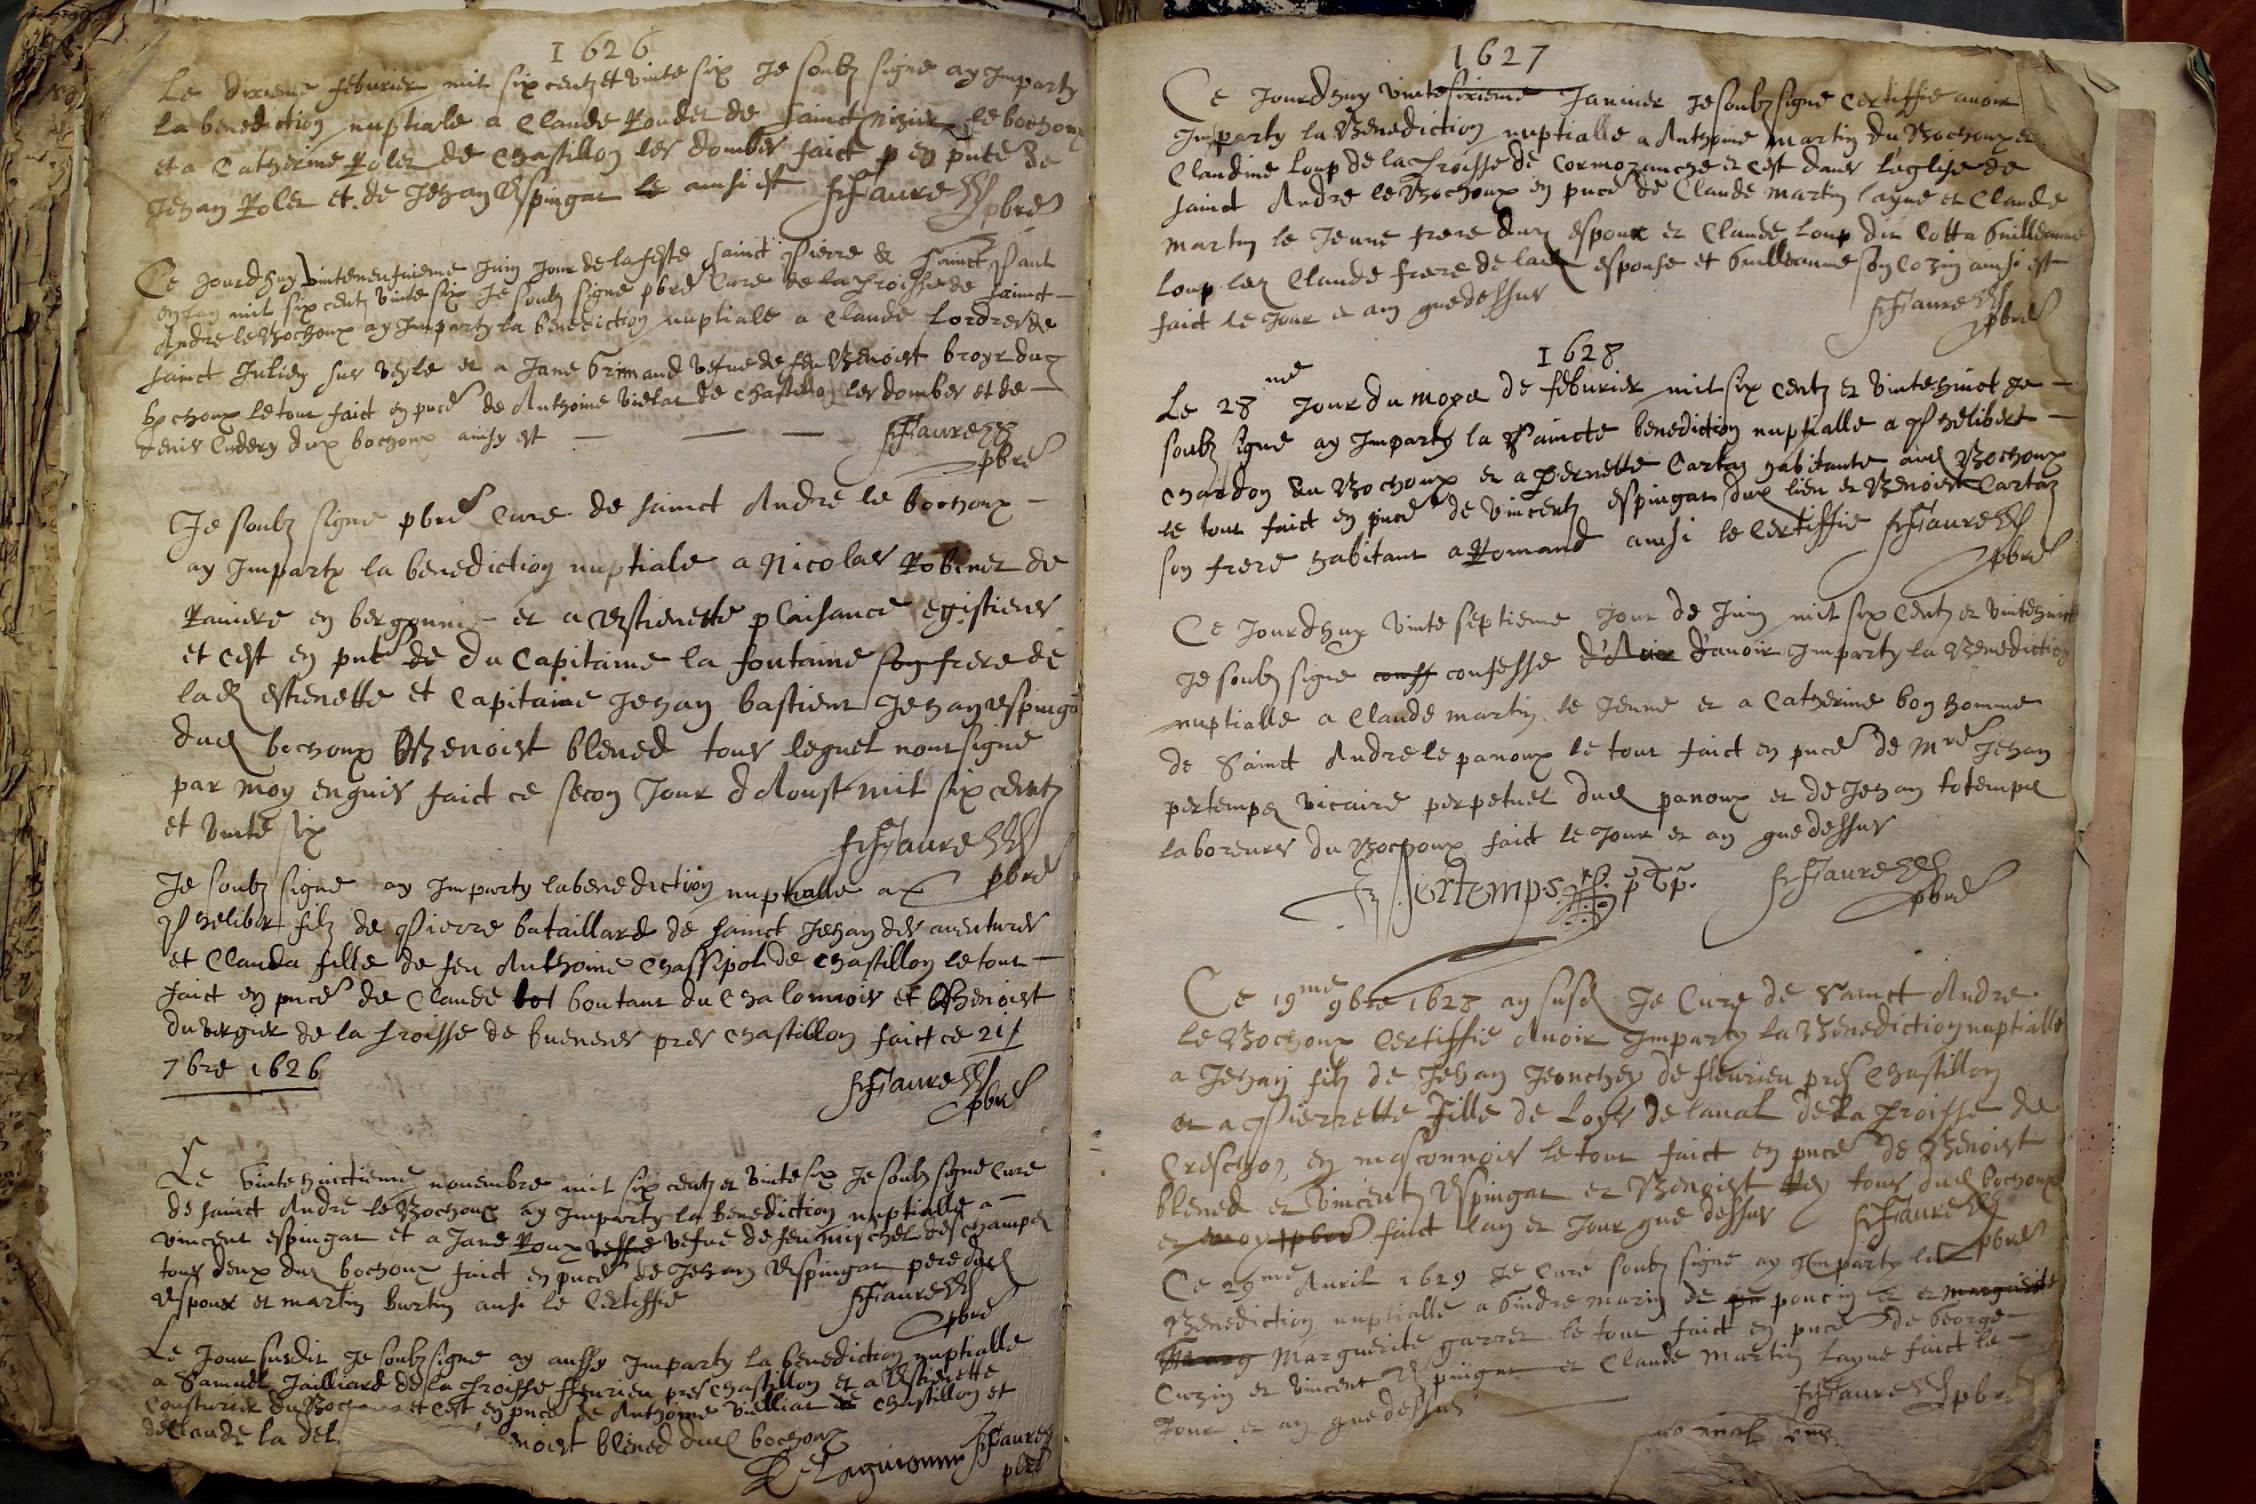 1626
Le dixieme febvrier mil six centz et vinte six Je soubz signe ay Imparty
la benediction nuptiale a Claude Rondet de sainct nizier le bochoux
et a Catherine Rolet de Chastillon les dombes faict p en pnte de
Jehan Rolet et de Jehan Espingat le ainsi est frFaure
pbre
Ce Jourdhuy vinteneufuieme Juin Jour de la feste sainct Pierre & sainct Paul
en lan mil six centz vinte six Je soubz signe pbre Cure de la Proisse de sainct
Andre le Bochoux ay Imparty la benediction nuptiale a Claude Lordres de
sainct Julien sur veyle et a Jane Grimand vefue de feu Benoist broyr dud
bochoux le tout faict en pnce de Anthoine vielat de Chastillon les dombes et de
denis Cudery dux bochoux ainsy est frFaure
pbre
Je soubz signe pbre Cure de sainct Andre le bochoux
ay Imparty la benediction nuptiale a Nicolas Robinet de
Raviere en bergounie et a Estienette plaisance egistiens
et cest en pnte de du Capitaine la fontaine son frere de
lad estienette et Capitaine Jehan bastient Jehan espingat
dud bochoux Benoist blened tous lequel nont signe
par moy enquis faict ce secon Jour dAoust mil six centz
et vinte six frFaure
pbre
Je soubz signe ay Imparty la benediction nuptialle a
Phelibert filz de Pierre bataillard de sainct Jehan des aventures
et Clauda fille de feu Anthoine Chassipol de Chastillon le tout
faict en pnce de Claude bot boutant du Chalonnois et Benoist
du vergier de la Proisse de buenens pres Chastillon faict ce 21
7bre 1626
frFaure
pbre
Le vinte huictieme novembre mil six centz et vinte six Je soubz signe Cure
de sainct Andre le Bochoux ay Imparty la Benediction nuptialle a
vincent espingat et a Jane Roux vefve vefue de feu mischel deschampz
tous deux dud bochoux faict en pnce de Jehan Espingat pere dud
espoux et martin Burtin ansi le Certiffie frFaure
pbre
Le Jour susdit Je soubz signe ay aussy Imparty la benediction nuptialle
a Samuel Jailliard de la Proisse fleurieu pres Chastillon et a Estienette
Cousturier du et cest en pnce de Anthoine vielliat de Chastillon et
de Claude la del blened dud bochoux
frFaure
pbre
1627
Ce Jourdhuy vinte sixieme Janvier Je soubz signe Certiffie avoir
Imparty la Benediction nuptialle a Anthoine martin du Bochoux et
Claudine Loup de la Proisse de Cormoranche et cest dans leglise de
sainct Andre le Bochoux en pnce de Claude martin layne et Claude
martin le Jeune frere dud espoux et Claude Loup dit Cotta Guilleaume
Loup led Claude frere de lad espouse et Guilleaume son Cozin ainsi est
faict le Jour et an que dessus frFaure
pbre
1628
Le 28me Jour du moys de febvrier mil six centz et vinte huict Je
soubz signe ay Imparty la Saincte benediction nuptialle a Phelibert
Chardon du Bochoux et a pernette Cartaz habitante aud Bochoux
le tout faict en pnce de vincentz espingat dux lieu et Benoist Cartaz
son frere habitant a Romand ainsi le Certiffie frFaure
pbre
Ce Jourdhuy vinte septieme Jour de Juin mil six Centz et vinte huict
Je soubz signe conff confesse d'Avoir d'avoir Imparty la Benediction
nuptialle a Claude martin le Jeune et a Catherine bon homme
de Sainct Andre le panoux le tout faict en pnce de Mre Jehan
pertemps vicaire perpetuel dud panoux et de Jehan totemps
laboreurs du Bochoux faict le Jour et an que dessus
Pertemps frFaure
pbre
Ce 19me 9bre 1628 ay susd Je Cure de Sainct Andre
le Bochoux Certiffie Avoir Imparty la Benediction nuptialle
a Jehan filz de Jehan Jeonchey de fleurieu pres Chastillon
et a Pierrette fille de Loys de laval de la Proisse de
Creschon en masconnois le tout faict en pnce de Benoist
blened et vincentz Espingat et Benoist tous dud bochoux
et moy pbre faict lan et Jour que dessus frFaure
pbre
Ce 29me Avril 1629 Je Cure soubz signe ay Imparty la
Benediction nuptialle a Gindre marin de poncin et et marguerite
Marg Marguerite garret le tout faict en pnce de George
Cuzin et vincent Espingat et Claude Martin layne faict le
Jour et an que dessus frFaure
pbre